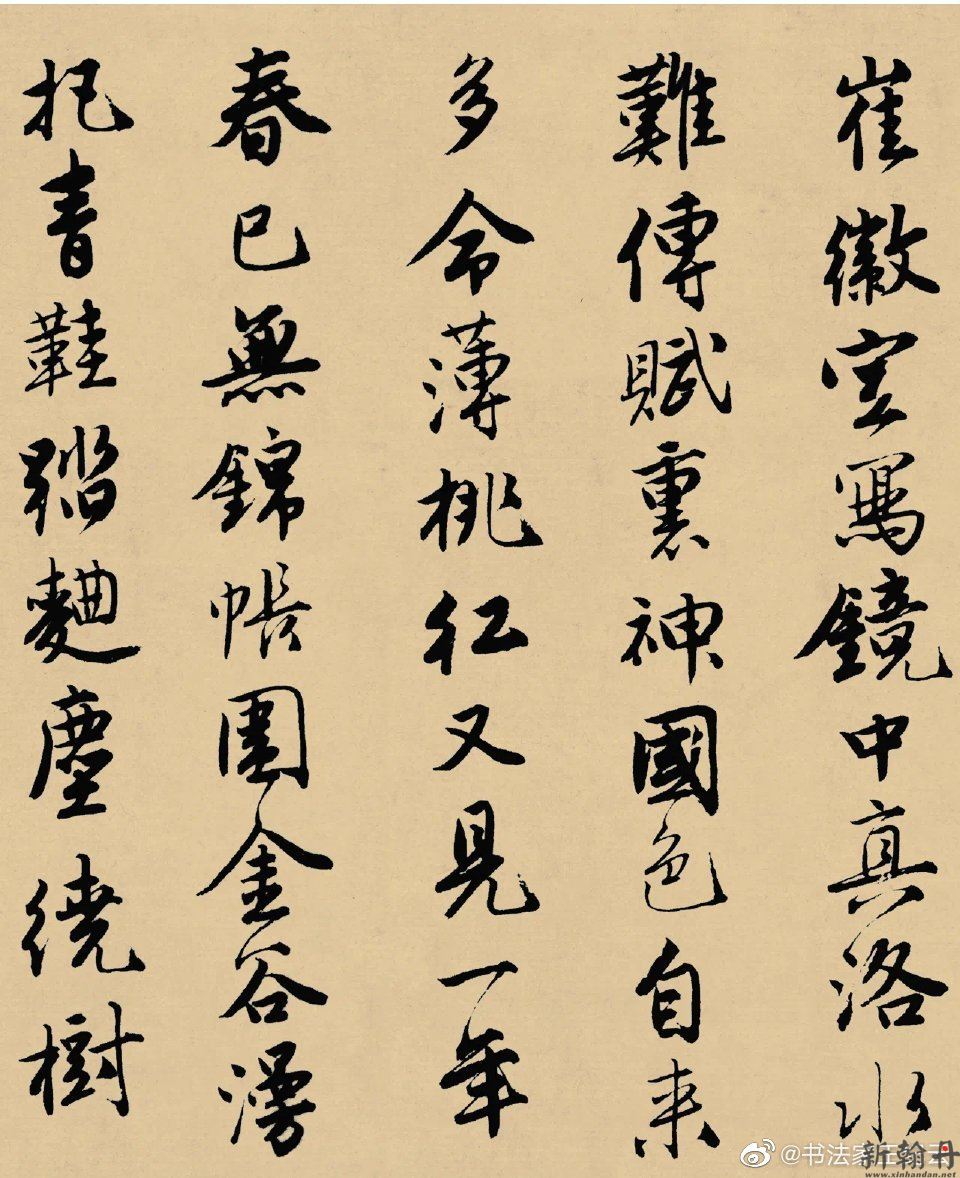 崔徽空寫鏡中真洛水
難傳賦裏神國色自来
多命薄桃紅又見一年
春已無錦帳圍金谷漫
把青鞋踏麯塵繞樹
@书法家
新翰丹
www.xinhandan.net